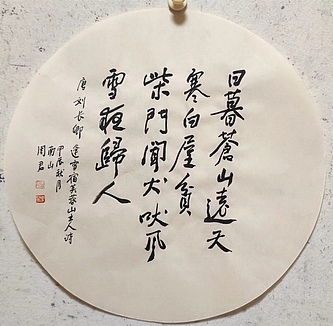 日暮蒼山遠天
寒白屋貧
柴門聞犬吠風
雪夜歸人
唐劉長卿 逢雪宿芙蓉山主人詩
甲辰秋月
雨山
周君